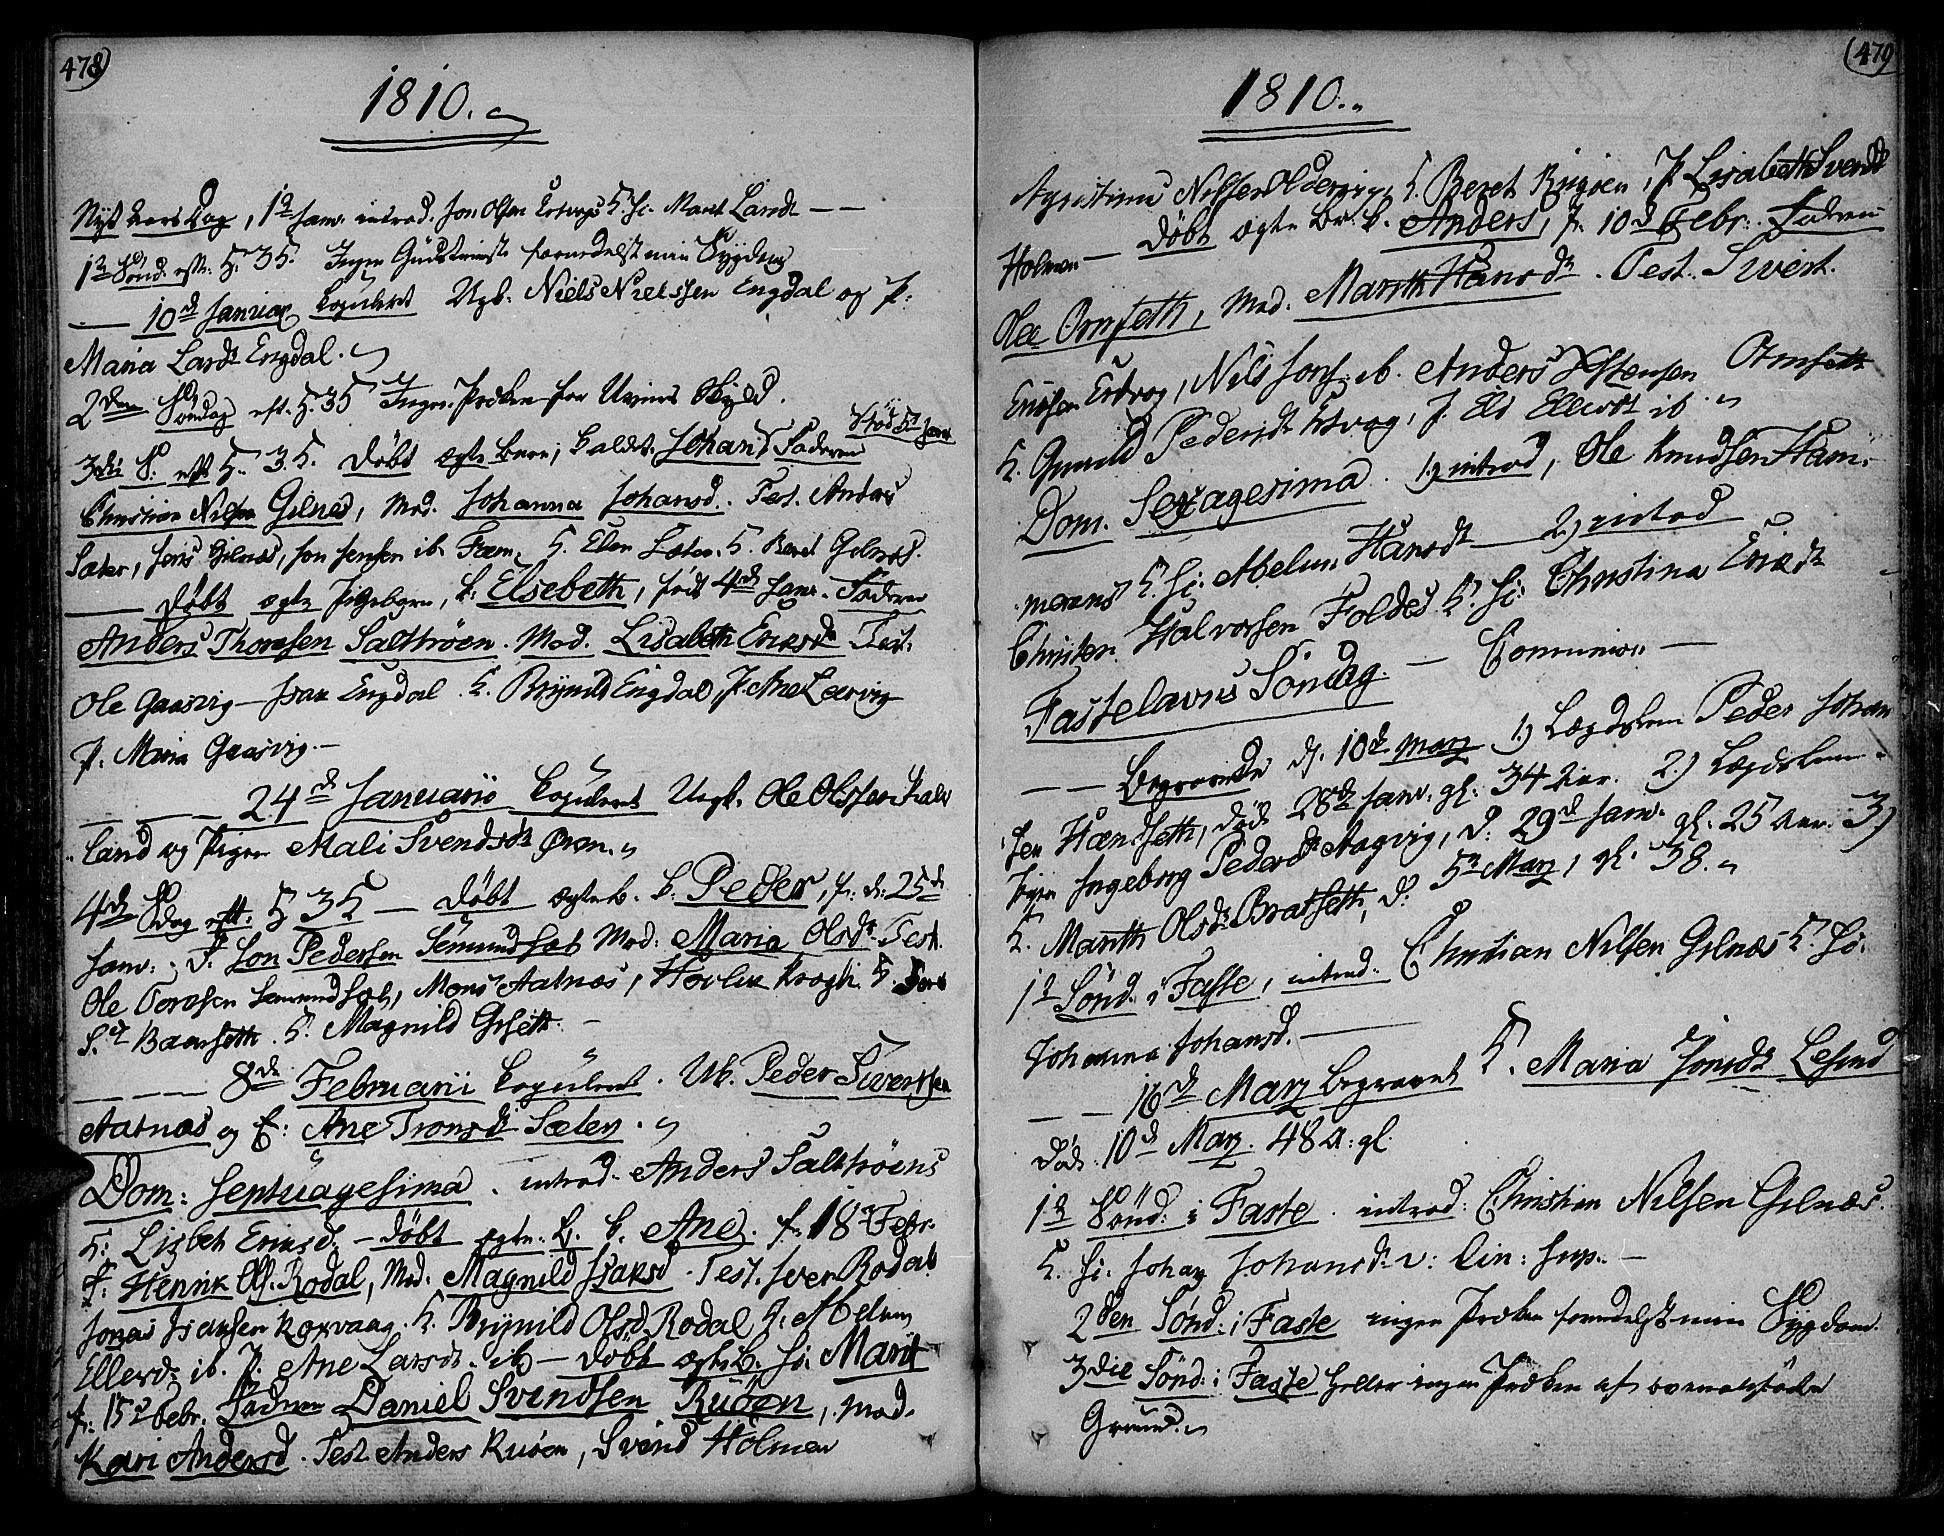 478
1810.
Nyt Aars Dag, 1ste Janv. introd. Jon Olsen Ertvogs K. hs. Marit Larsd.
1ste Sønd. eft. H. 3 K. Ingen Gudstieneste formedelst min Sygdom
10de Januar Copuleret Ungk. Niels Nielssen Engdal og P.
Maria Larsdr Engdal.
2den Søndag eft. H. 3 K. Ingen Præken for Veirets Skyld.
3die S. eft. H. 3 K. Døbt ægte Barn, kaldet Johan, Faderen
Christian Nilsen Gilnes, Mod. Johanna Johansd. Test. Anders
Sæter, Jens Gilnæs, Jon Jensen ib. Fæm. K. Elen Sæter. K. Beret Gilnæs.
døbt ægte Pigebarn, k. Elsebeth, født 4de Janv. Faderen
Anders Thoresen Salthrøen. Mod. Lisabeth Eriksdr Test.
Ole Gaasvig Isaac Engdal. K. Brynild Engdal, P. Ane Leervig
P. Maria Gaasvig.
24de Januarii Copuleret Ungk. Ole Olssen
land og Pigen Mali Svendsdr Øren.
4de Sdag eft. H 3 K døbt ægte b. k. Peder, f. d. 25de
Janv. F. Jon Pedersen Semundset Mod: Maria Olsdr. Test.
Ole Toresen Semundset, Mons Aatnæs, Krogh. K.
Baarseth. K. Magnild Giset.
8de Februarii Copuleret. Uk. Peder Sivertsen
Aatnæs og E: Ane Tronsdr Sæter.
Dom: Septuagesima. introd. Anders Salthrøens
K: Lisbeth Eriksd. døbt ægte b. k. Ane. f. 18de Febr.
F: Henrik Ols. Rodal, Mod. Magnild Isaksd. Test. Iver Rodal
Jonas Isaksen Roxvaag. K. Brynild Olsd. Rodal P. Abelun
Ellevsd. ib. P. Ane Larsdr. ib. døbt ægte b. k. Marit
f. 15de Febr. Faderen Daniel Svendsen Ruøen, Mod.
Kari Andersd. Test Anders Ruøen, Svend Holmen
479
1810.
Nilsen K. Beret P. Lisabeth Svendsdr
Holmen døbt ægte Br. k. Anders, f. 10de Febr. Faderen
Ole Ormseth, Mod. Marith Hansdr. Test. Sivert
Ericksen Ertvog, Nils Jons. ib. Anders Stensen Ormseth
K. Gunild Pedersdr Ertvog, P. Eli Ellevsdr ib.
Dom. Sexagesima. 1.) introd, Ole Knudsen Ham-
merens K. hs. Abelun Hansdr 2.) introd
Christen Halvorsen Foldes K. hs. Christina Ericsdr
Fastelavns Søndag. Communion
Begravede d. 10de Marz 1.) Lægdslem Peder Johan-
sen Handseth, død 28de Janv. gl. 34 Aar. 2.) Lægdslem
Pigen Ingeborg Pedersdr Aagvig, d. 29de Janv. gl. 25 Aar. 3)
K. Marith Olsdr Bratseth, d. 5te Marz, gl. 38.
1ste Sønd. i Faste, introd. Christian Nilsen Gilnæs K. hs.
Johanna Johansd.
16de Marz begravet K. Maria Jonsdr
død 10de Marz. 48 A. gl.
1ste Sønd: i Faste. introd. Christian Nilsen Gilnæs.
K. hs. Johan Johansdr.
2den Sønd: i Faste ingen Præken formedelst min Sygdom.
3die Sønd: i Faste heller ingen Præken af ovenanførte
Grund.